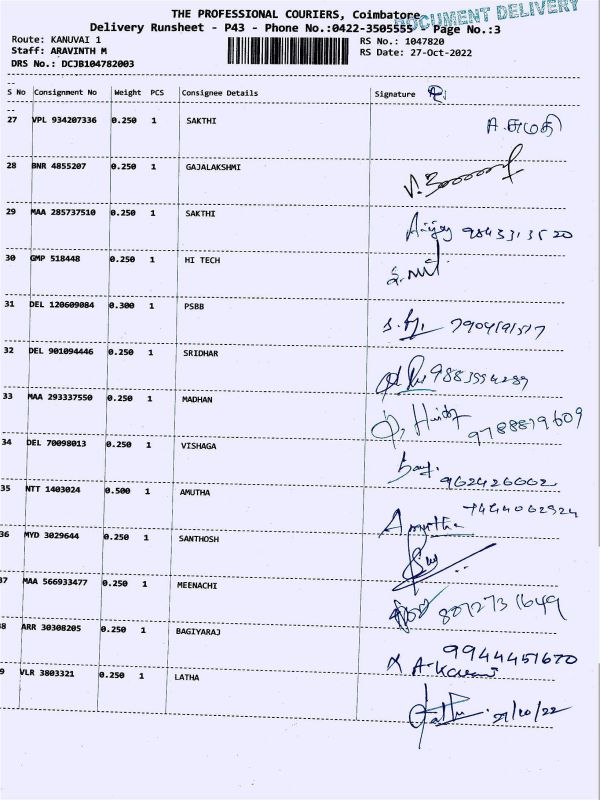 DOCUMENT DELIVERY
THE PROFESSIONAL COURIERS, Coimbatore
Delivery Runsheet - P43 - Phone No.:0422-3505555 - Page No.:3
Route: KANUVAI 1 RS No.: 1047820
Staff: ARAVINTH M RS Date: 27-Oct-2022
DRS No.: DCJB104782003
S No Consignment No Weight PCS Consignee Details Signature
27 VPL 934207336 0.250 1 SAKTHI A. சுமதி
28 BNR 4855207 0.250 1 GAJALAKSHMI
29 MAA 285737510 0.250 1 SAKTHI
30 GMP 518448 0.250 1 HI TECH
31 DEL 120609084 0.300 1 PSBB
32 DEL 901094446 0.250 1 SRIDHAR
33 MAA 293337550 0.250 1 MADHAN 9788879609
34 DEL 70098013 0.250 1 VISHAGA
35 NTT 1403024 0.500 1 AMUTHA Amutha
36 MYD 3029644 0.250 1 SANTHOSH
37 MAA 566933477 0.250 1 MEENACHI 8072731649
38 ARR 30308205 0.250 1 BAGIYARAJ 9944451670
39 VLR 3803321 0.250 1 LATHA 27/10/22